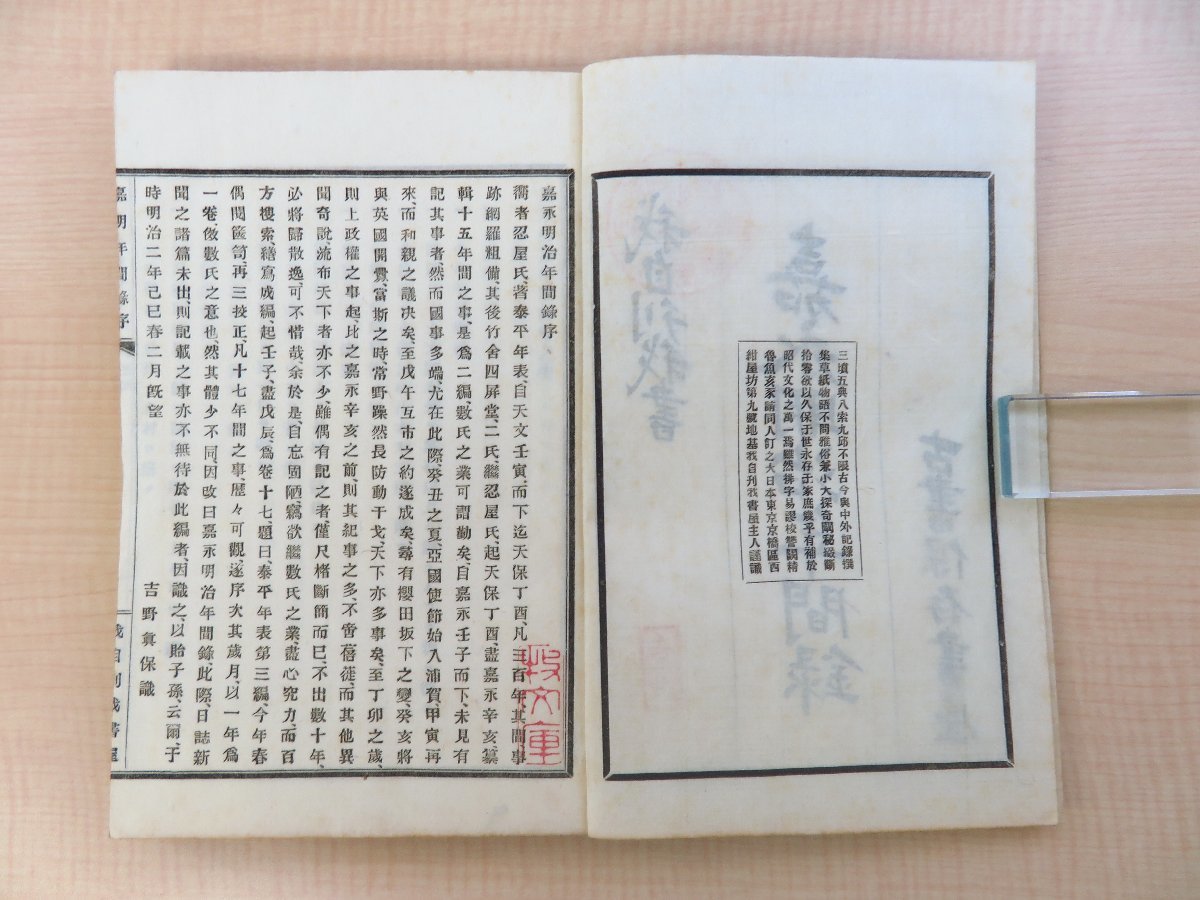 三墳五典八索九邱不限古今與中外記録撰
集草紙物語不問雅俗兼小大探奇闡秘綴斷
拾零欲以久保于世永存于家庶幾乎有補於
昭代文化之萬一焉雖然排字易謬校讐闕精
魯魚亥豕請同人訂之大日本東京京橋區西
紺屋坊第九號地基我自刊我書屋主人謹識
嘉永明治年間錄序
嚮者忍屋氏、著泰平年表、自天文壬寅、而下迄天保丁酉、凡三百年、其間事
跡網羅粗備、其後竹舍四屏堂、二氏繼忍屋氏、起天保丁酉、盡嘉永辛亥、纂
輯十五年間之事、是爲二編、數氏之業可謂勤矣、自嘉永壬子而下、未見有
記其事者、然而國事多端、尤在此際、癸丑之夏、亞國使節始入浦賀、甲寅再
來、而和親之議决矣、至戊午互市之約遂成矣、尋有櫻田坂下之變、癸亥將
與英國開釁、當斯之時、當野躁然長防動干戈、天下亦多事矣、至丁卯之歲、
則上政權之事起、比之嘉永辛亥之前、則其紀事之多、不啻蓓蓰、而其他異
聞奇說、流布天下者亦不少、雖偶有記之者、僅尺楮斷簡而已、不出數十年、
必將歸散逸、可不惜哉、余於是、自忘固陋、竊欲繼數氏之業、盡心究力、而百
方搜索、繕寫成編、起壬子、盡戊辰、爲卷十七、題曰、泰平年表第三編、今年春
偶閱篋笥、再三挍正、凡十七年間之事、歷々可觀、遂序次其歲月、以一年爲
一卷、倣數氏之意也、然其體少不同、因改曰嘉永明治年間錄、此際、日誌新
聞之諸篇未出、則記載之事亦不無待於此編者、因識之、以貽子孫、云爾、于
時明治二年己巳春二月既望
吉野眞保識
嘉明年間錄序
我自刊我書屋